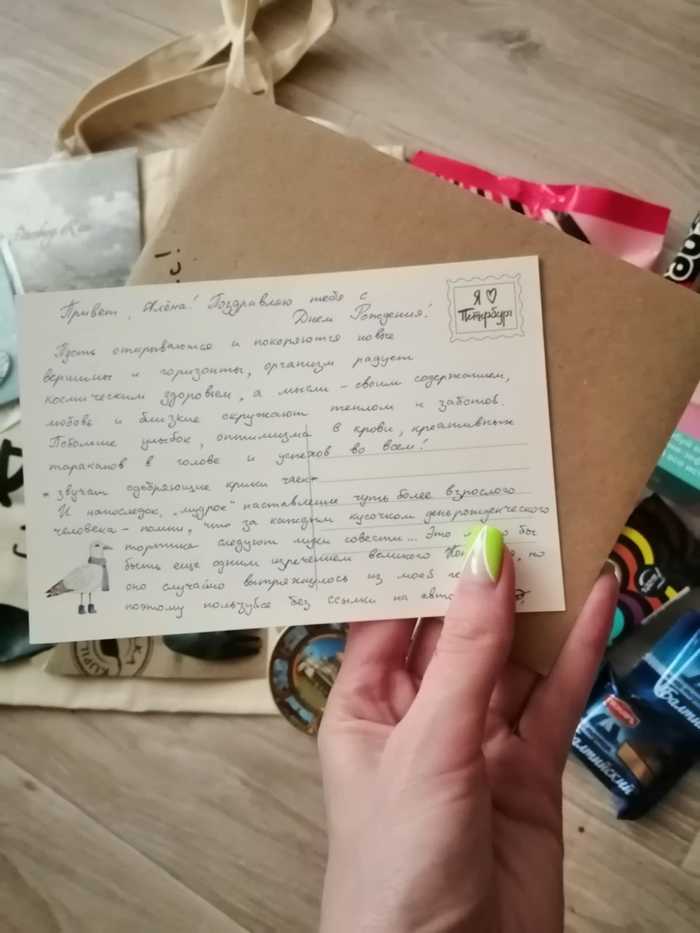 Привет, Алёна! Поздравляю тебя с
Днем Рождения!
Я ♡
Петербург
Пусть открываются и покоряются новые
вершины и горизонты, организм радует
космическим здоровьем, а мысли – своим содержанием,
любовь и близкие окружают теплом и заботой.
Побольше улыбок, оптимизма в крови, креативных
тараканов в голове и успехов во всем!
*звучат одобряющие крики чаек*
И напоследок, „мудрое" наставление чуть более взрослого
человека – помни, что за каждым кусочком деньрожденческого
тортика следуют муки совести... Это бы
быть еще одним изречением великого но
оно случайно вытряхнулось из моей
поэтому пользуйся без ссылки на
KUPIL
Балтийский